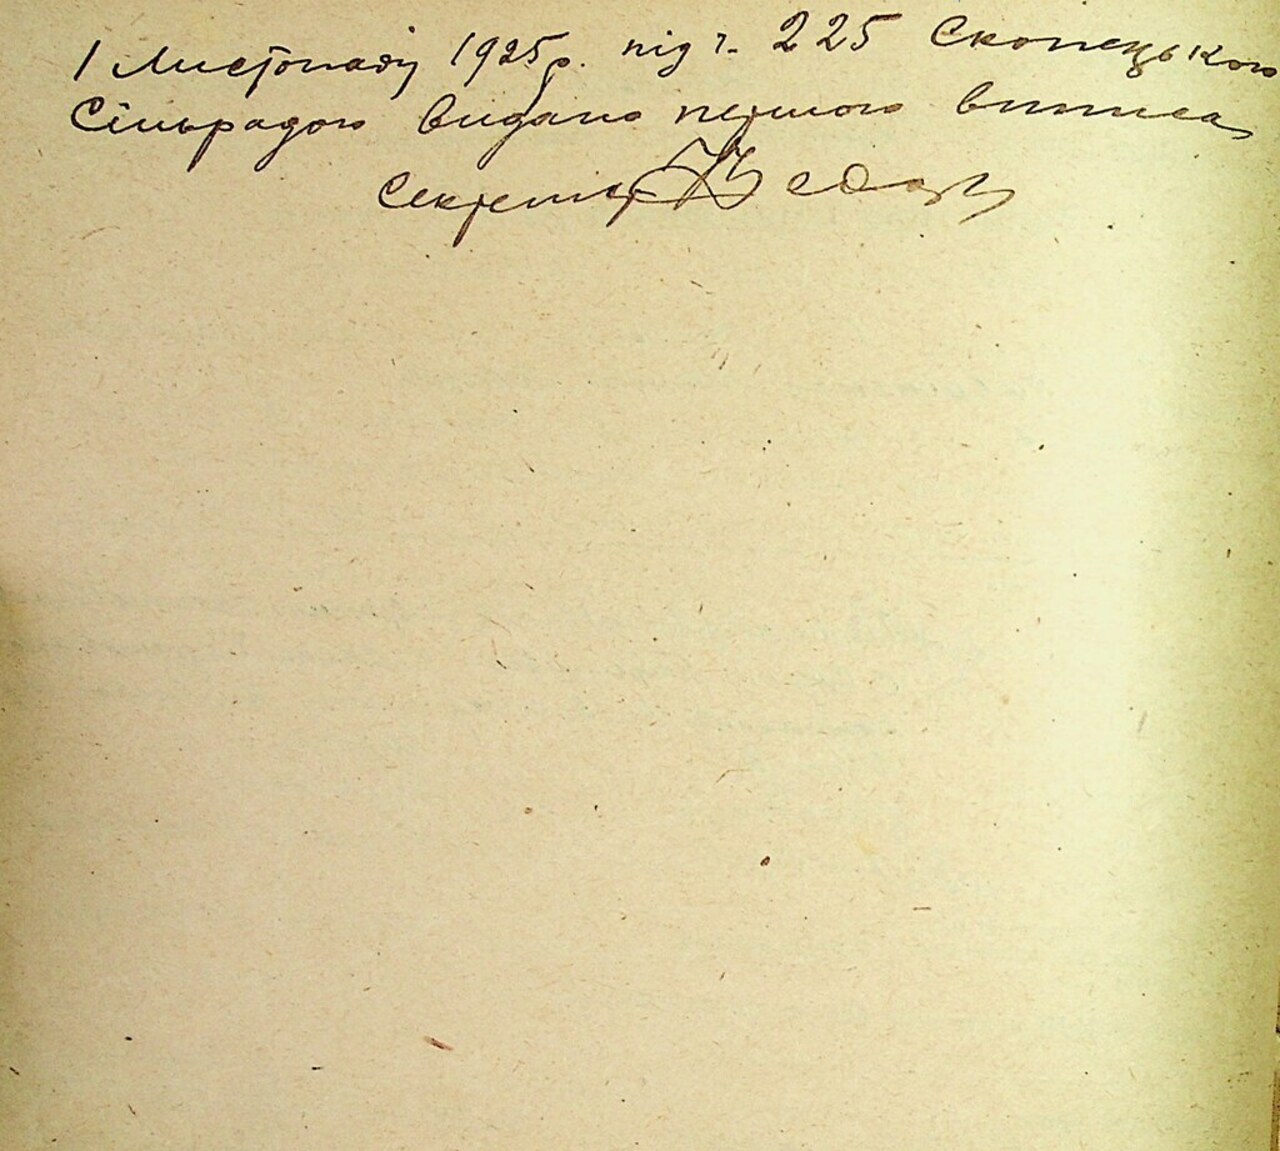 1 Листопаду 1925р. під ч. 225 Скопецькою
Сільрадою видано першого виписа
Секретар